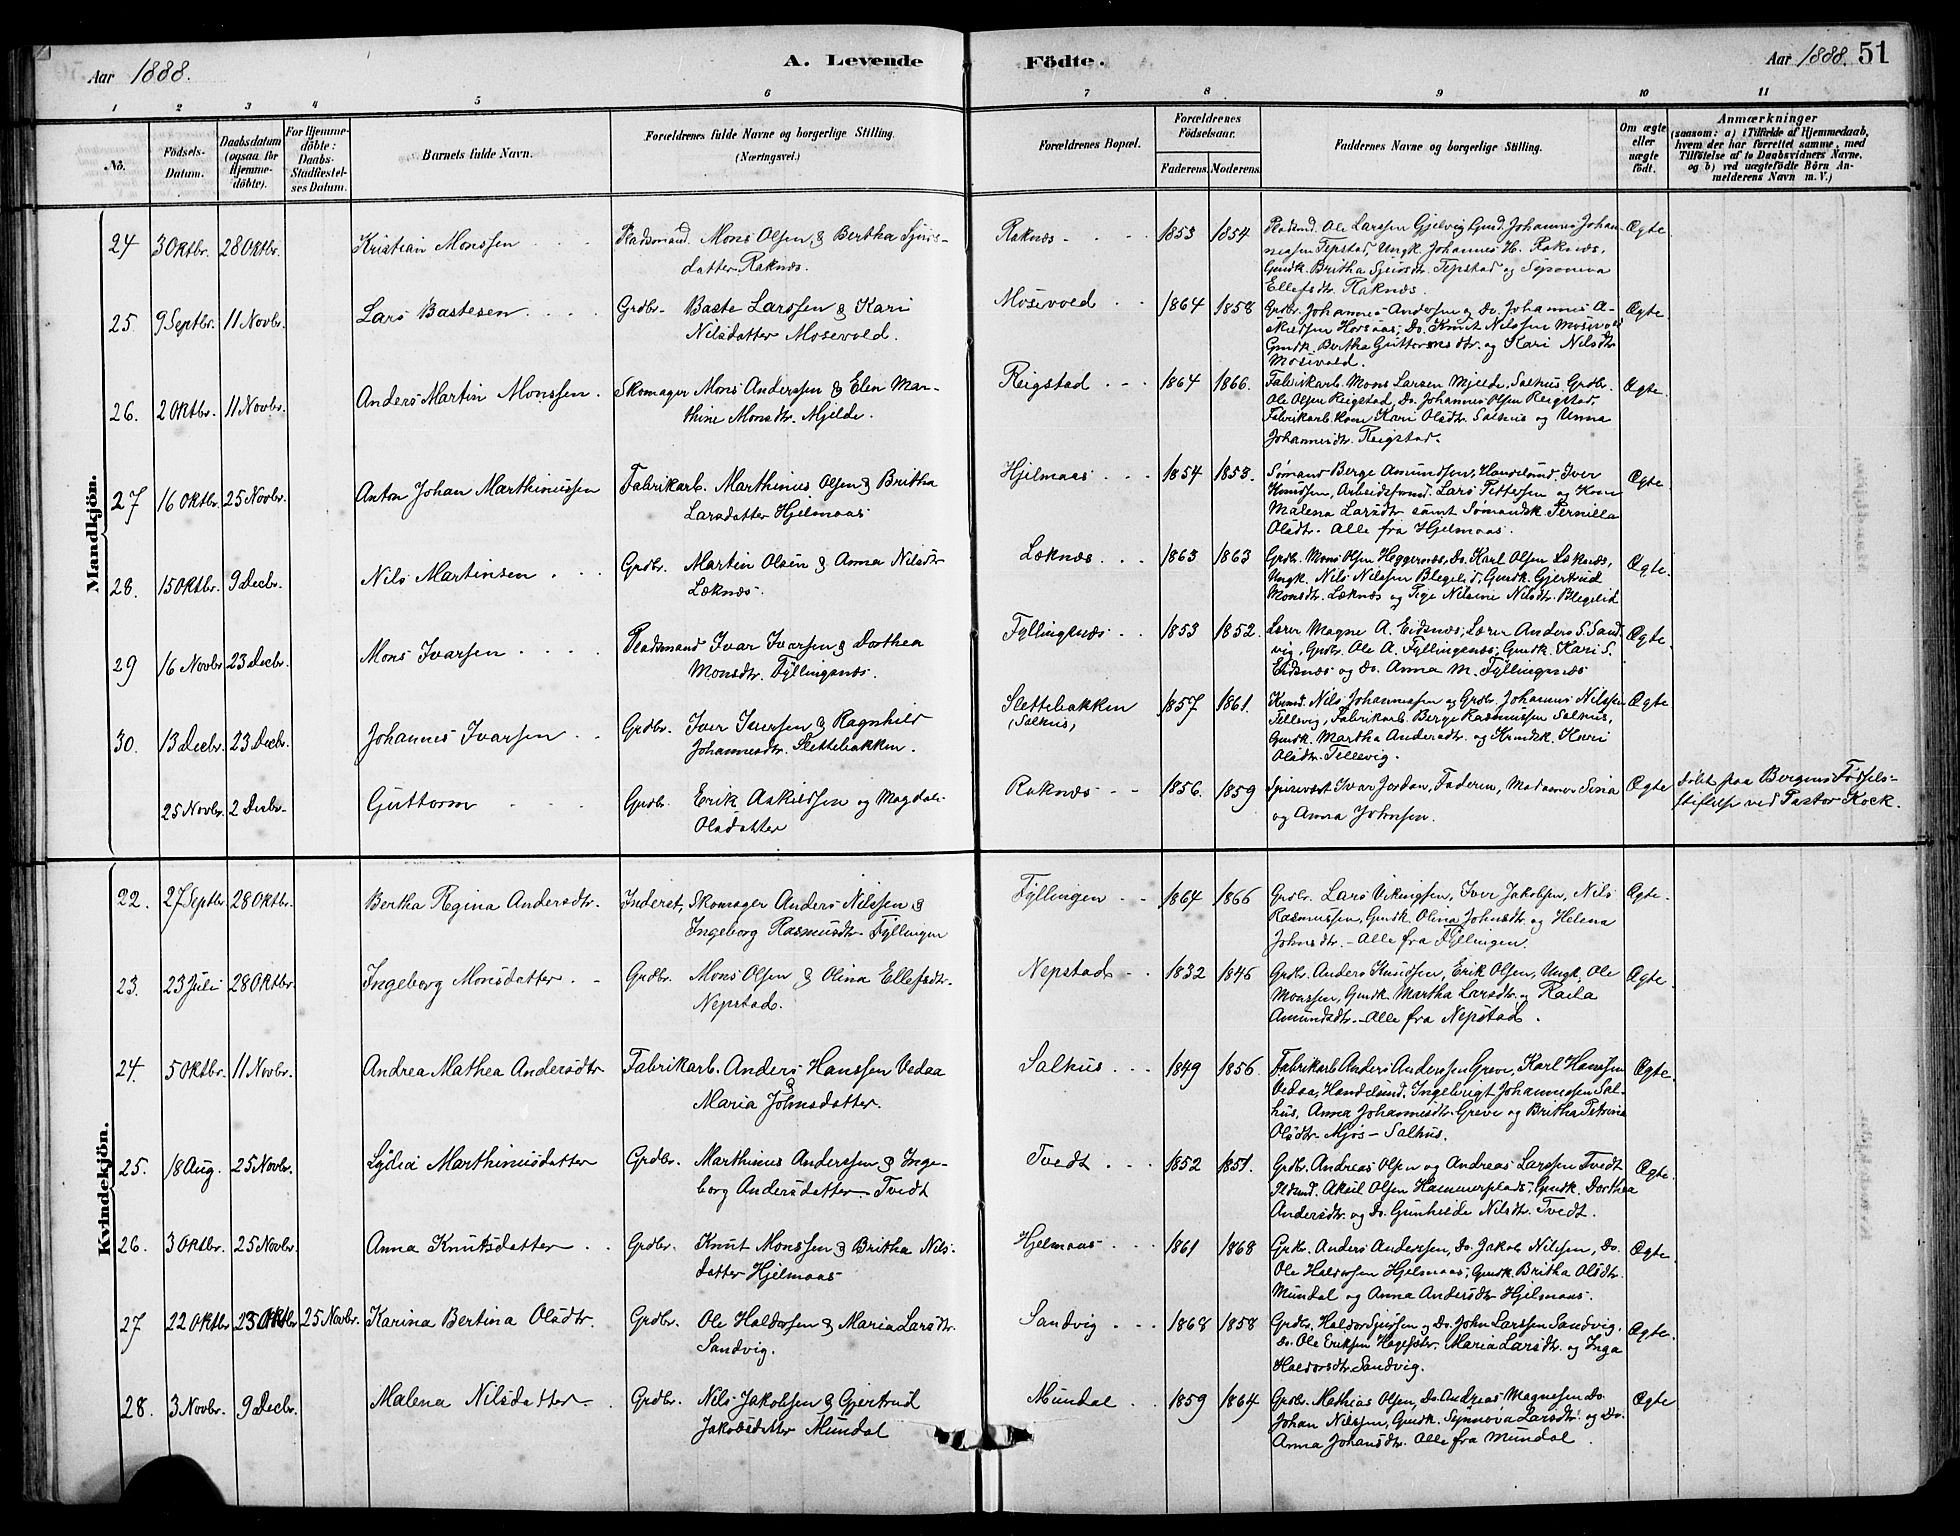 Aar 1888. A. Levende Födte. Aar 1888. 51
1 2 3 4 5 6 7 8 9 10 11
No. Födsels-Datum. Daabsdatum (ogsaa for Hjemme-döbte). For Hjemme-döbte: Daabs-Stadfæstel-ses Datum. Barnets fulde Navn. Forældrenes fulde Navne og borgerlige Stilling. (Næringsvei.) Forældrenes Bopæl. Forældrenes Födselsaar. Faderens. Moderens. Faddernes Navne og borgerlige Stilling. Om ægte eller uægte födt. Anmærkninger
(saasom: a) i Tilfælde af Hjemmedaab,
hvem der har forrettet samme, med
Tilföielse af to Daabsvidners Navne,
og b) ved uægtefödte Börn An-
melderens Navn m. V.)
Mandkjön.
24 3 Oktbr. 28 Oktbr. Kristian Monssen Pladsmand Mons Olsen & Bertha Sjurs- Raknæs 1853 1854 Pladsmd. Ole Larssen Gjelvig Gmd. Johannes Johan- Ægte
datter Raknæs. nessen Tepstad, Ungk. Johannes H. Raknæs,
Gmdk. Britha Sjursdtr. Tepstad og
Ellefsdtr. Raknæs.
25 9 Septbr. 11 Novbr. Lars Bastesen Grdbr. Baste Larssen & Kari Mosevold 1864 1858 Grdbr. Johannes Andersen og Do. Johannes A- Ægte
Nilsdatter Mosevold. skildsen Horsaas, Do. Knut Nilssen Mosevold
Gmdk. Bertha Guttormsdtr. og Kari Nilsdtr.
Mosevold.
26. 2 Oktbr. 11 Novbr. Anders Martin Monssen. Skomager Mons Anderssen & Elen Mar- Reigstad 1864 1866. Fabrikarb. Mons Larsen Mjelde, Salhus, Grdbr. Ægte.
thine Monsdtr. Mjelde. Ole Olsen Reigstad, Do. Johannes Olsen Reigstad,
Fabrikarb. Kone Kari Olsdtr. Salhus og Unna
Johannesdtr. Reigstad.
27 16 Oktbr. 25 Novbr. Anton Johan Marthinussen Fabrikarb. Marthinus Olsen & Britha Hjelmaas 1854 1853. Sømand Berge Amundsen, Handelsmd. Iver Ægte.
Larsdatter Hjelmaas Knudsen, Arbeidsmd. Lars Pettersen og Kone
Malena Larsdtr. samt Sømandsk. Pernilla
Olsdtr. Alle fra Hjelmaas.
28. 15 Oktbr. 9 Decbr. Nils Martinsen Grdbr. Martin Olsen & Anna Nilsdtr Læknæs 1863 1863 Grdbr. Mons Olsen Heggernæs, Do. Karl Olsen Læknæs, Ægte.
Læknæs. Ungk. Nils Nilssen Blegelid, Gmdk. Gjertrud
Monsdtr. Læknæs og Pige Nilsine Nilsdtr. Blegelid
29 16 Novbr. 23 Decbr. Mons Ivarsen Pladsmand Ivar Ivarsen & Dorthea Fyllingsnæs 1853 1852. Lærer Magne A. Eidsnæs, Lærer Anders S. Sand- Ægte.
Monsdtr. Fyllingsnæs. vig, Grdbr. Ole A. Fyllingsnæs, Gmdk. Kari S.
Eidsnæs og Do. Anna M. Fyllingsnæs
30. 13 Decbr. 23 Decbr. Johannes Ivarsen Grdbr. Iver Iversen & Ragnhild Slettebakken 1857 1861. Kmd. Nils Johannessen og Grdbr. Johannes Nilssen Ægte
Johannesdtr. Slettebakken. (Salhus) Tellevig, Fabrikarb. Berge Rasmussen Salhus,
Gmdk. Martha Andersdtr. og Kmdsk. Kari
Olsdtr. Tellevig.
25 Novbr. 2 Decbr. Guttorm Grdbr. Erik Askildsen og Magdali Raknæs 1856. 1859 Spisevært Ivar Jordan, Faderen, Madame Sina Ægte døbt paa Bergens Fødsels-
Olsdatter og Anna Johnsen. stiftelse ved Pastor Kock.
Kvindekjön.
22. 27 Septbr. 28 Oktbr. Bertha Regina Andersdtr. Inderst, Skomager Anders Nilssen & Fyllingen 1864 1866 Grdbr. Lars Vikingsen, Iver Jakobsen, Nils Ægte.
Ingeborg Rasmusdtr. Fyllingen Rasmussen, Gmdk. Olina Johnsdtr og Helena
Johnsdtr. - Alle fra Fyllingen.
23. 23 Juli 28 Oktbr. Ingeborg Monsdatter Grdbr. Mons Olsen & Olina Ellefsdtr. Nepstad 1832 1846 Grdbr. Anders Knudsen, Erik Olsen, Ungk. Ole Ægte.
Nepstad. Monssen, Gmdk. Martha Larsdtr. og Raila
Amundsdtr. - Alle fra Nepstad.
24. 5 Oktbr. 11 Novbr. Andrea Mathea Andersdtr Fabrikarb. Anders Hanssen Vedaa Salhus 1849 1856. Fabrikarb Anders Anderssen Greve, Karl Hanssen Ægte.
& Maria Johnsdatter. Vedaa, Handelsmd. Ingebrigt Johannessen Sal-
hus, Anna Johannesdtr. Greve og Britha Petrina
Olsdtr. Mjøs - Salhus.
25. 18 Aug. 25 Novbr. Lydia Marthinusdatter Grdbr. Marthinus Anderssen & Inge- Tvedt 1852 1851. Grdbr. Andreas Olsen og Andreas Larssen Tvedt Ægte.
borg Andersdatter Tvedt Pldsmd. Aksel Olsen Hammersplads, Gmdk. Dorthea
Andersdtr. og Do. Gunhilde Nilsdtr. Tvedt.
26. 3 Oktbr. 25 Novbr. Anna Knutsdatter Grdbr. Knut Monssen & Britha Nils- Hjelmaas 1861 1868 Grdbr. Anders Andersen, Do. Jakob Nilssen, Do. Ægte.
datter Hjelmaas Ole Haldorsen Hjelmaas, Gmdk. Britha Olsdtr.
Mundal og Anna Andersdtr Hjelmaas.
27 22 Oktbr 23 Oktbr. 25 Novbr. Karina Bertina Olsdtr. Grdbr. Ole Haldorsen & Maria Larsdtr. Sandvig 1868 1858 Grdbr. Haldor Sjursen og Do. John Larssen Sandvig, Ægte.
Sandvig. Do. Ole Eriksen Maria Larsdtr. og Inga
Haldorsdtr. Sandvig.
28. 3 Novbr. 9 Decbr. Malena Nilsdatter Grdbr. Nils Jakobsen & Gjertrud Mundal 1859 1864 Grdbr. Mathias Olsen, Do. Andreas Magnesen Do. Ægte
Jakobsdatter Mundal Johan Nilssen, Gmdk. Synnøva Larsdtr. og Do.
Anna Johansdtr. Alle fra Mundal.